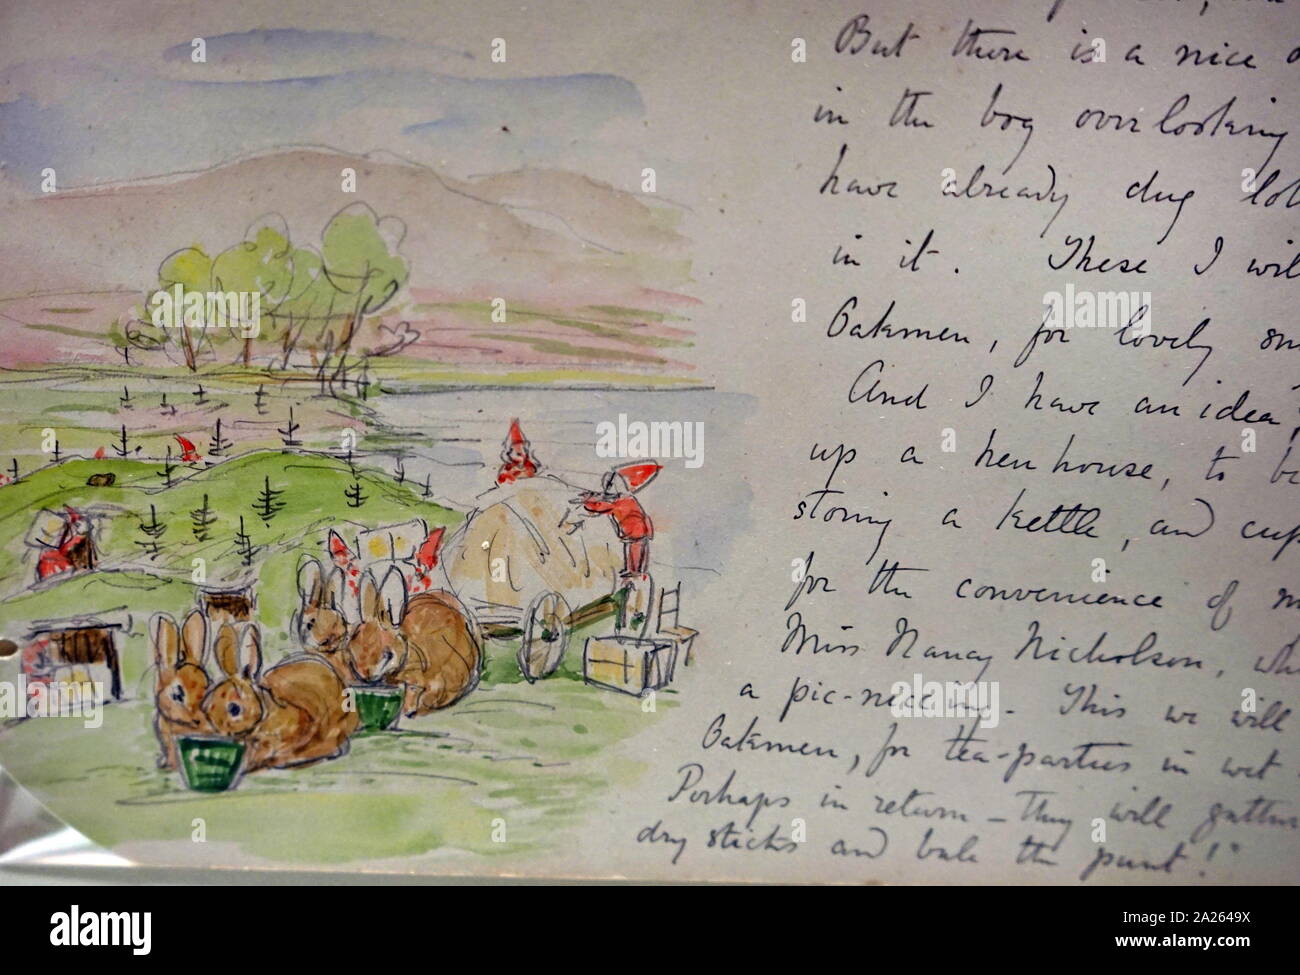 But there is a nice
in the bog overlooking
have already dug
in it. These I
Oakmen, for lovely
And I have an idea
up a hen house, to
storing a kettle, and
for the convenience of
Miss Nancy Nicholson,
a pic-niccing. This we will
Oakmen, for tea-parties in wet
Perhaps in return – they will gather
dry sticks and bale the punt!"
alamy
Image ID: 2A2649X
www.alamy.com